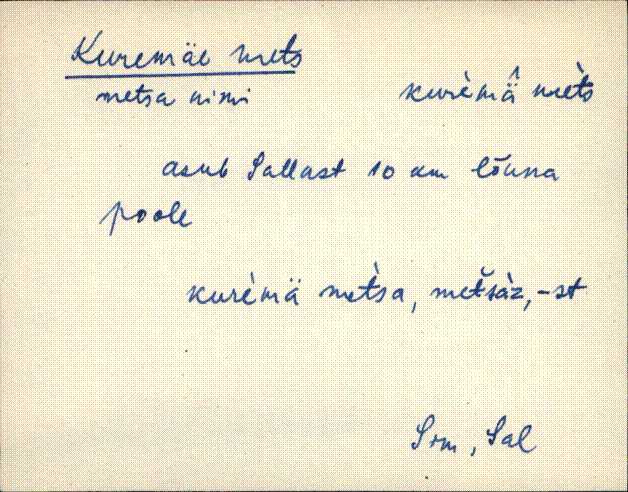 Kuremäe mets
metsa nimi kurèmä̂ mèts
asub Sallast 10 km lõuna
poole
kurèmä mètsa, metšàz, -st
Srm, Sal